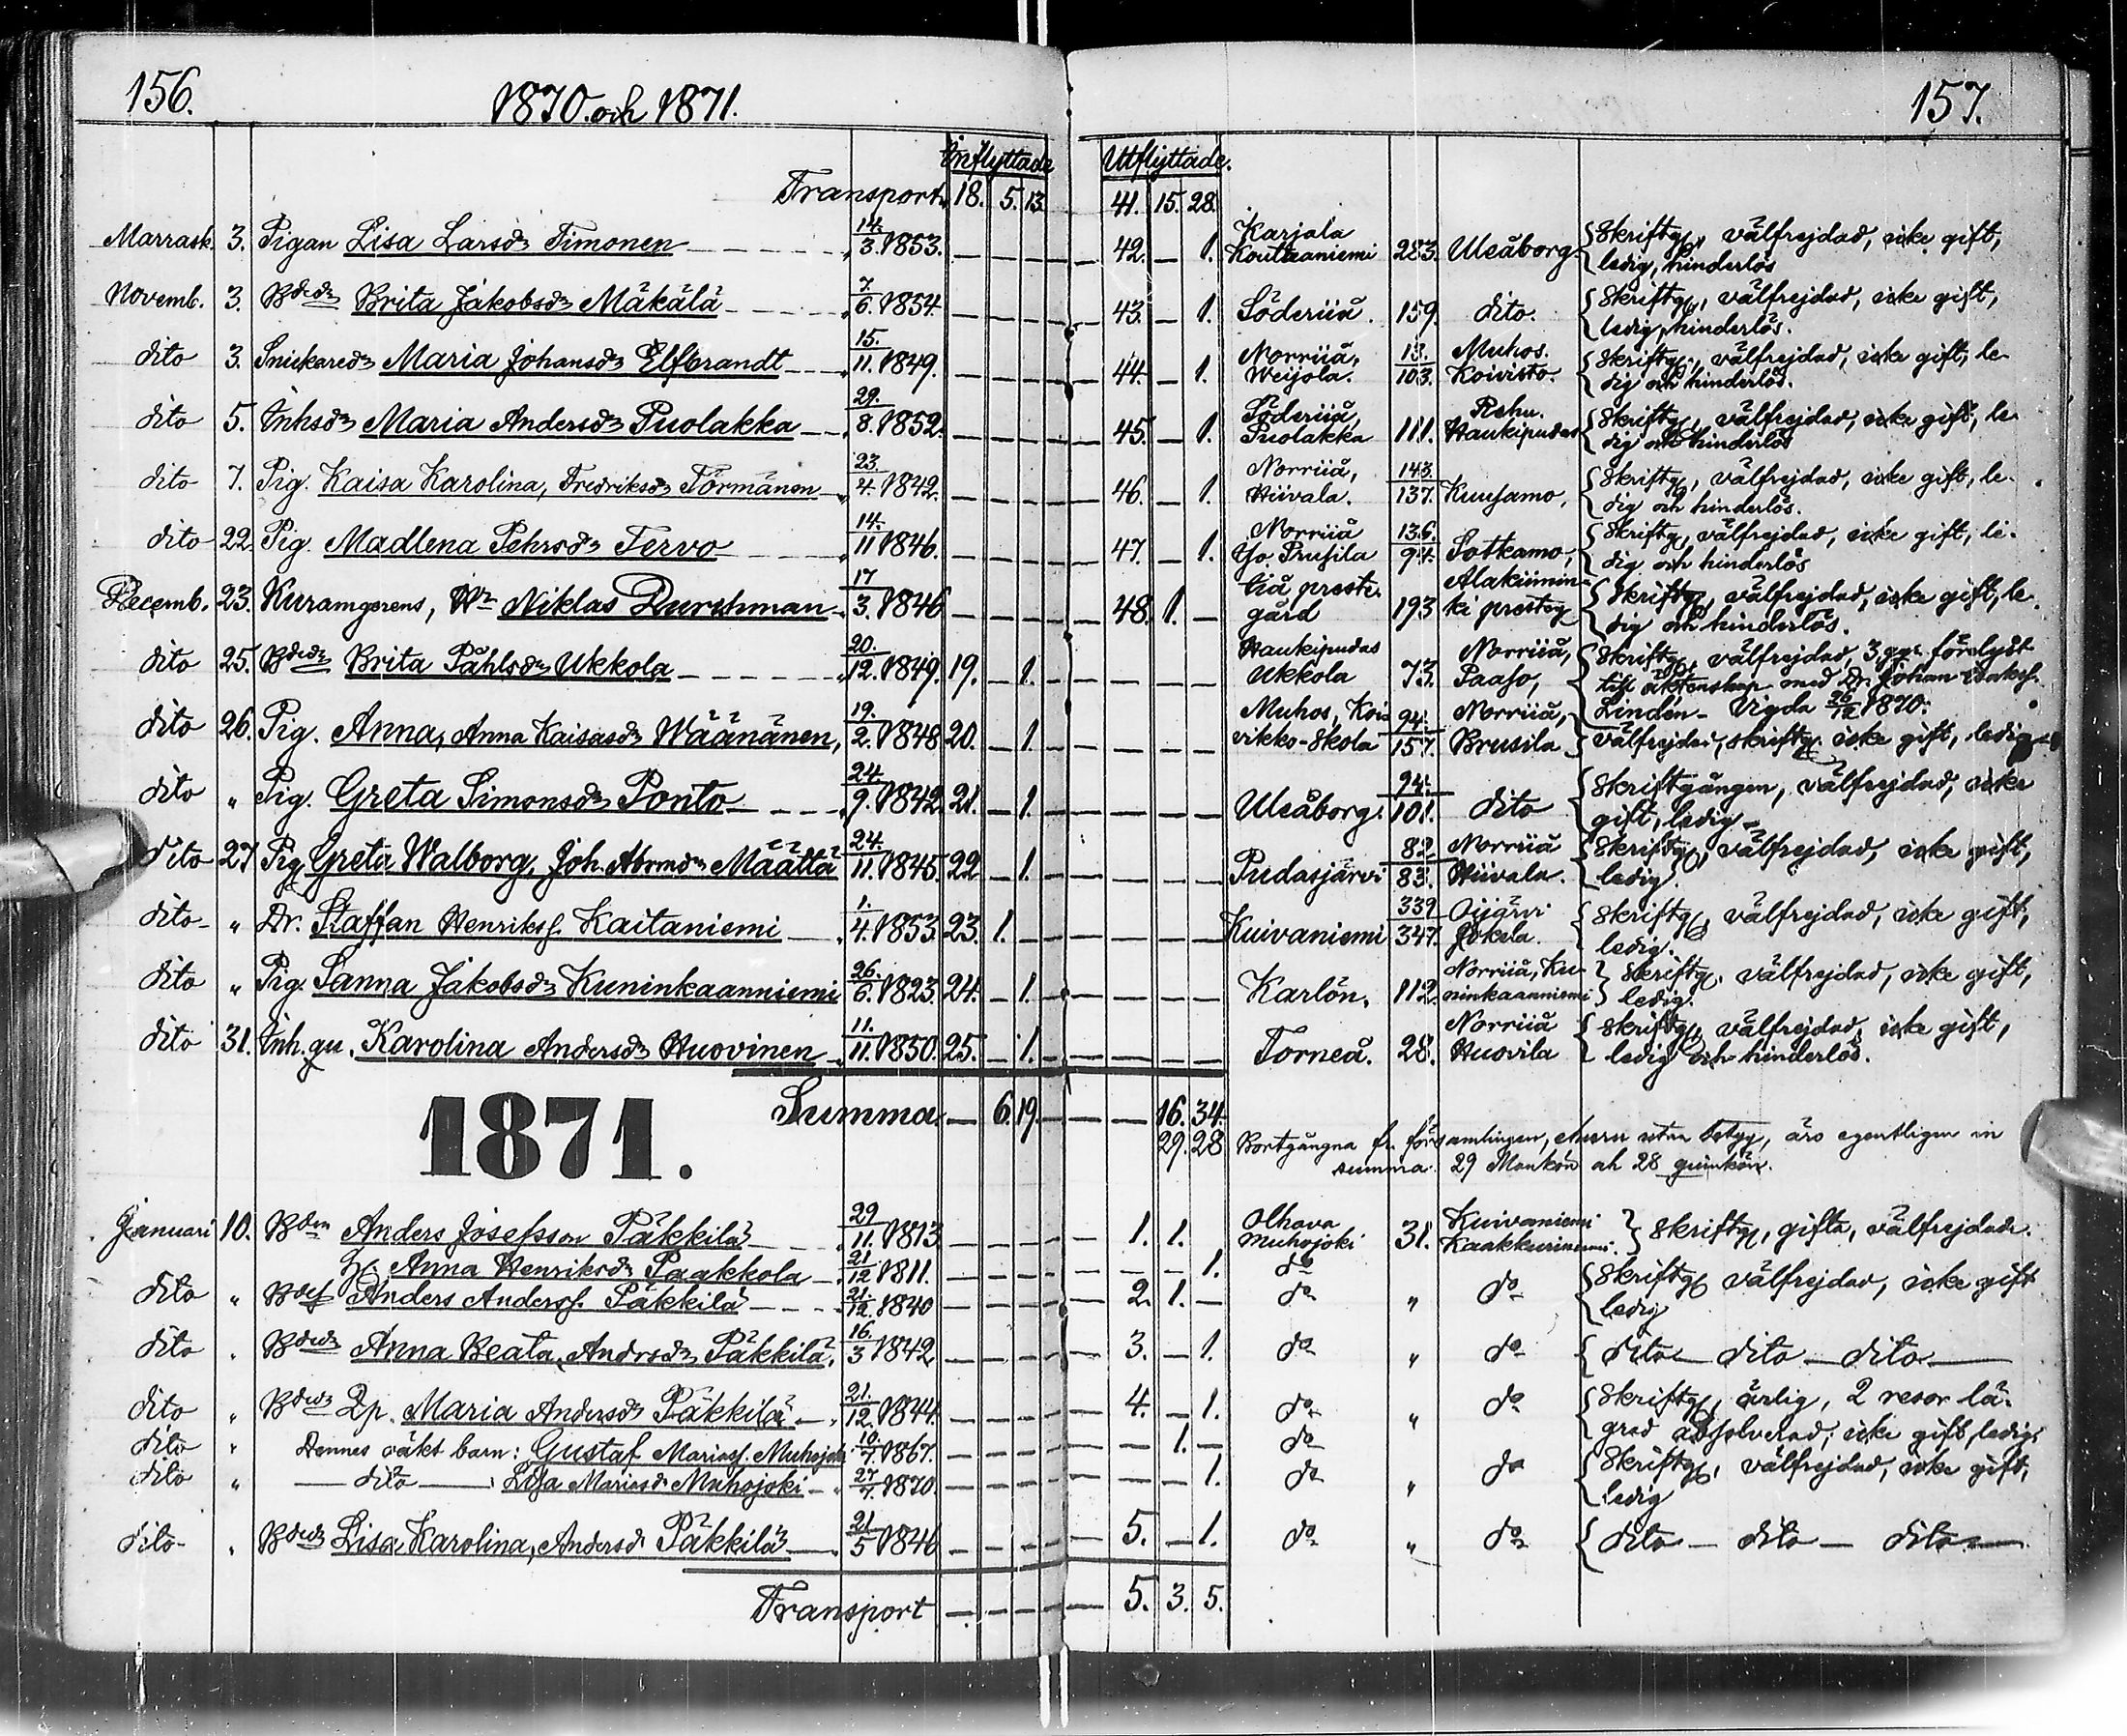 156.
1870. och 1871.
157.
Inflyttade
Utflyttade.
Transport. 18. 5. 13. 41. 15. 28.
Marrask. 3. Pigan Lisa Larsdr Timonen 14./3. 1853. 42. 1. Karjala 283. Uleåborg. Skriftg, välfrejdad, icke gift,
ledig, hinderlös
Novemb. 3. Bdedr Brita Jakobsdr Mäkälä 7./6. 1854. 43. 1. Söderiiå. 159. dito. Skriftg, välfrejdad, icke gift,
ledig, hinderlös.
dito 3. Snickaredr Maria Johansdr Elfbrandt 15./11. 1849. 44. 1. Norriiå, Weijola. 13./103. Muhos. Koivisto. Skriftg, välfrejdad, icke gift, le-
dig och hinderlös.
dito 5. Inhsdr Maria Andersdr Puolakka 29./8. 1852. 45. 1. Söderiiå, Puolakka 111. Rehu. Haukipudas Skriftg, välfrejdad, icke gift, le-
dig och hinderlös
dito 7. Pig. Kaisa Karolina, Fredriksdr Törmänen 23./4. 1842. 46. 1. Norriiå, Hiivala. 143./137. Kuusamo, Skriftg, välfrejdad, icke gift, le-
dig och hinderlös.
dito 22. Pig. Madlena Pehrsdr Tervo 14./11 1846. 47. 1. Norriiå Prusila 136./94. Sotkamo, Skriftg, välfrejdad, icke gift, le-
dig och hinderlös
Decemb. 23. Niklas Durchman 17/3. 1846 48. 1. Iiå preste- gård 193 Alakiimin- ki prestg Skriftg, välfrejdad, icke gift, le-
dig och hinderlös.
dito 25. Bdedr Brita Påhlsdr Ukkola 20./12. 1849. 19. 1. Haukipudas Ukkola 73. Norriiå, Paaso, Skriftg, välfrejdad, 3 ggr. förelyst
till äktenskap med Dr. Johan Isaksf.
Lindén – Vigda 26/12 1870.
dito 26. Pig. Anna, Anna Kaisasdr Wäänänen, 19./2. 1848 20. 1. Muhos, Koi- vikko-Skola 94./157. Norriiå, Brusila välfrejdad, skriftg. icke gift, ledig
dito " Pig. Greta Simonsdr Ponto 24./9. 1842 21. 1. Uleåborg. 94./101. dito Skriftgången, välfrejdad, icke
gift, ledig
dito 27 Pig Greta Walborg, Joh. Abrmdr Määttä 24./11. 1845. 22. 1. Pudasjärvi 82./83. Norriiå Hiivala. Skriftg, välfrejdad, icke gift,
ledig.
dito " Dr. Staffan Henriksf. Kaitaniemi 1./4. 1853. 23. 1. Kuivaniemi 339/347. Oijärvi Jokela. Skriftg, välfrejdad, icke gift,
ledig.
dito " Pig. Sanna Jakobsdr Kuninkaanniemi 26./6. 1823. 24. 1. Karlön. 112. Norriiå, Ku- ninkaanniemi Skriftg. välfrejdad, icke gift,
ledig.
dito 31. Inh. gu. Karolina Andersdr Huovinen 11./11. 1850. 25. 1. Torneå. 28. Norriiå Huovila Skriftg, välfrejdad, icke gift,
ledig och hinderlös.
Summa. 6. 19. 16. 34.
1871.
29. 28 Bortgångna fr. församlingen, ehuru utan betyg, äro egentligen in
summa 29 Mankön och 28 quinkön.
Januari 10. Bden Anders Josefsson Päkkilä 29/11. 1813 1. 1. Olhava Muhojoki 31. Kuivaniemi Kaakkuriniemi. Skriftg, gifta, välfrejdade.
h. Anna Henriksdr Paakkola 21/12 1811. 1. do
dito " Bdef Anders Andersf. Päkkilä 21./12. 1840 2. 1. do " do Skriftg välfrejdad, icke gift
ledig
dito " Bdedr Anna Beata, Andrsdr Päkkilä. 16./3 1842 3. 1. do " do dito – dito – dito
dito " Bdedr Qp. Maria Andersdr Päkkilä 21./12. 1844. 4. 1. do " do Skriftg, ärlig, 2 resor lä-
grad absolverad, icke gift, ledig
dito " Dennes oäkt barn: Gustaf Mariasf. Muhojoki 10./7. 1867. 1. do
dito " dito Lisa Mariasdr Muhojoki 27/7. 1870. 1. do " do Skriftg, välfrejdad, icke gift,
ledig
dito " Bdedr Lisa Karolina, Andersdr Päkkilä 21/5 1846 5. 1. do " do dito – dito – dito
Transport 5. 3. 5.